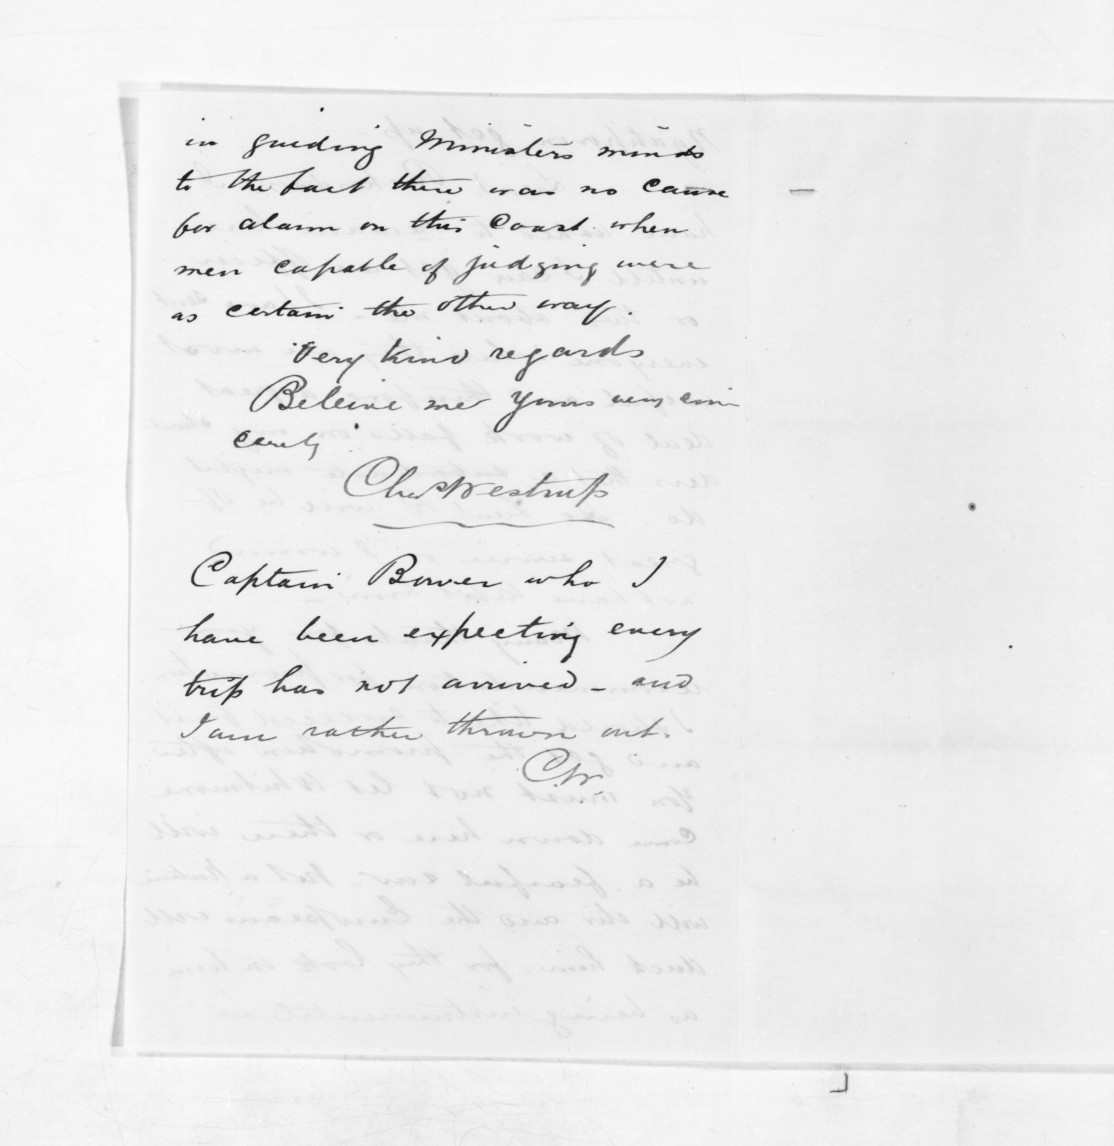 in guiding Ministers minds
to the fact there was no cause
for alarm on this Coast. when
men capable of judging were
as certain the other way.
Very kind regards
Beleive me Yours very sin
cerely
Chas Westrup
Captain Bower who I
have been expecting every
trip has not arrived – and
I am rather thrown out.
C.W.